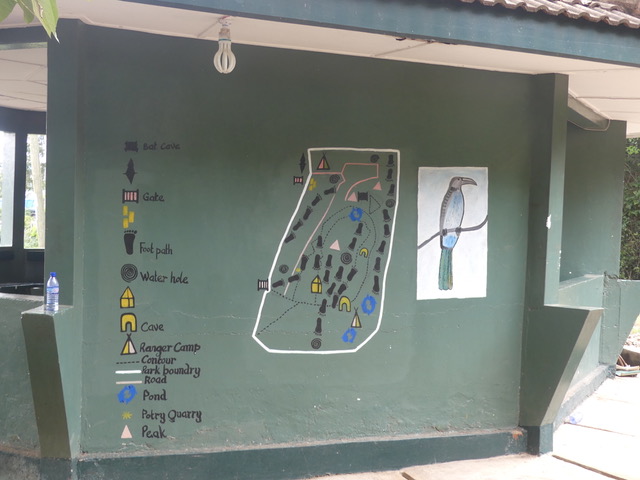 Bat Cave
Gate
Foot path
Water hole
Cave
Ranger Camp
Contour
Park boundry
Road
Pond
Potry Quarry
Peak